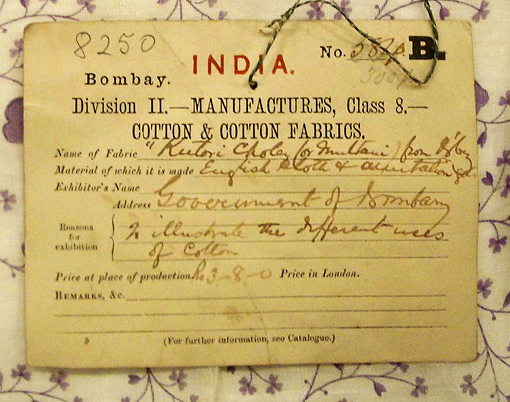 8250
INDIA.
No. B.
Bombay.
Division II.—MANUFACTURES, Class 8.—
COTTON & COTTON FABRICS.
Name of Fabric "Kutori Choley (or Multani) from
Material of which it is made English Cloth &
Exhibitor's Name
Address Government of Bombay
Reasons for exhibition
To illustrate the different uses
of Cotton
Price at place of production Rs 3-8-0 Price in London.
REMARKS, &c.
(For further information, see Catalogue.)